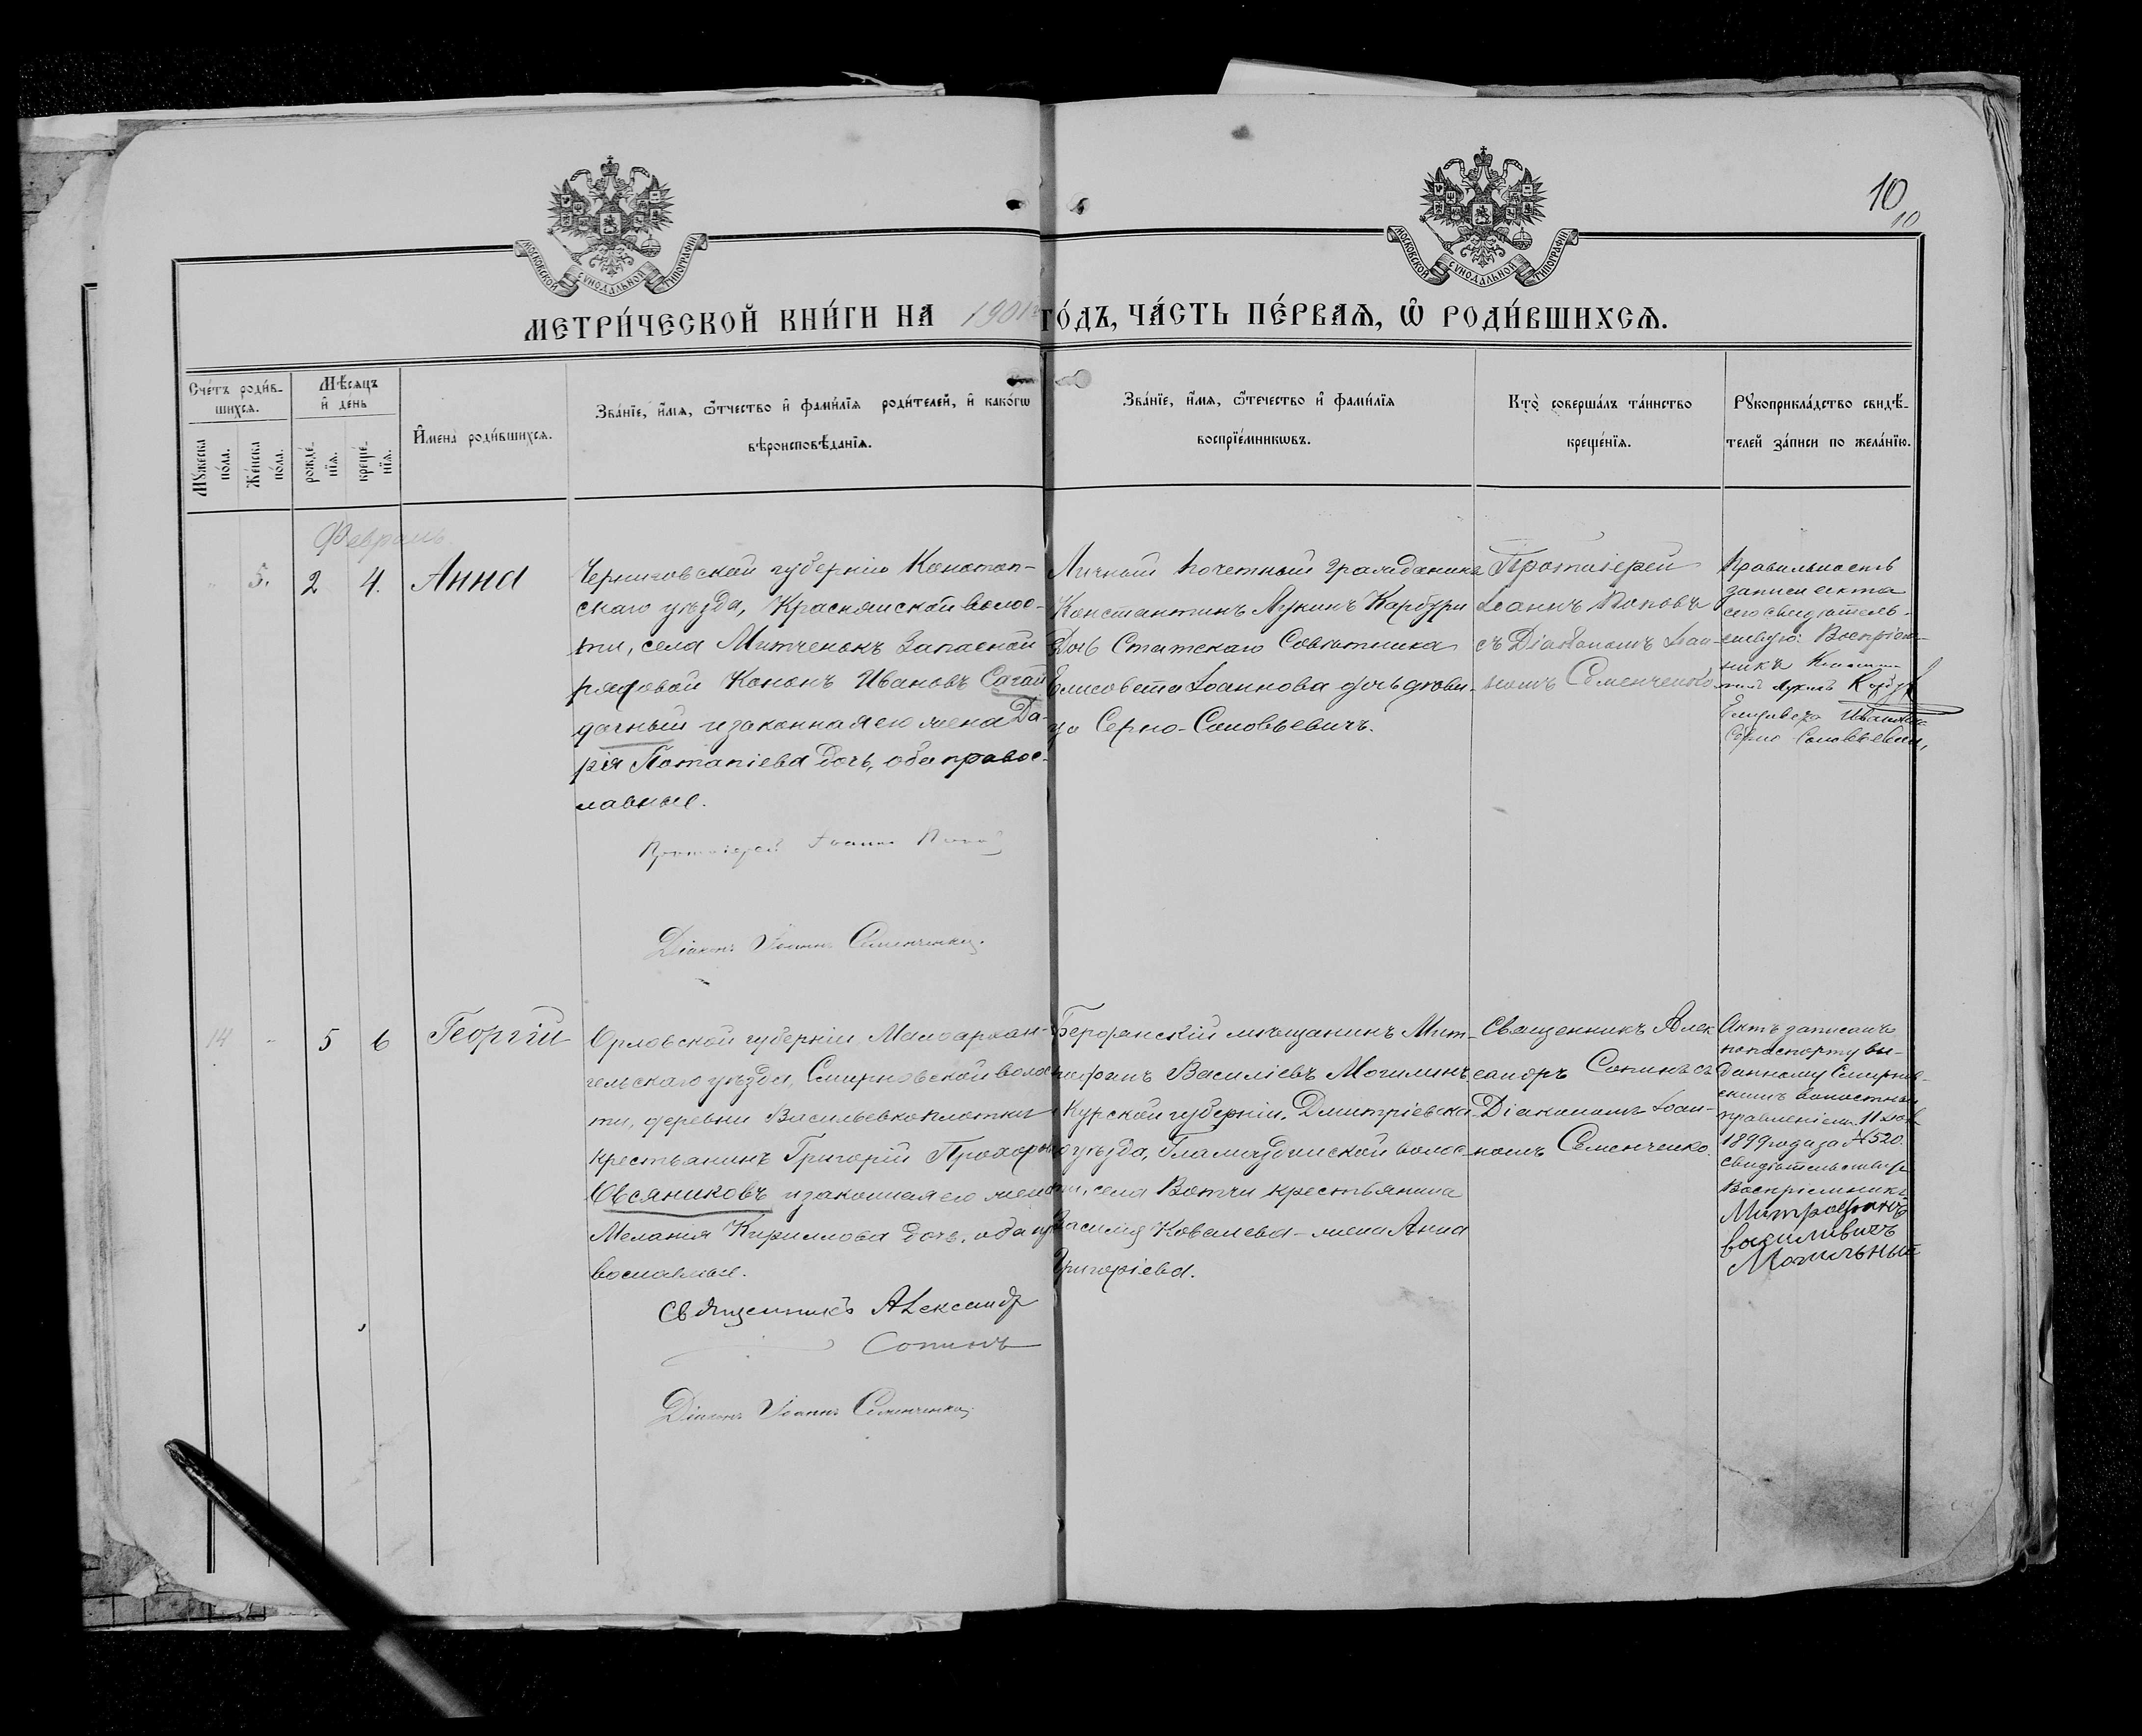 10
10
МОСКОВСКОЙ СѴНОДАЛЬНОЙ ТИПОГРАФІИ
МОСКОВСКОЙ СѴНОДАЛЬНОЙ ТИПОГРАФІИ
МЕТРИ́ЧЕСКОЙ КНИ́ГИ НА 1901й ГО́ДЪ, ЧА́СТЬ ПЕ́РВАѦ, Ѡ РОДИ́ВШИХСѦ.
Сче́тъ роди́в-
шихсѧ.
Мꙋ́жеска
по́ла.
Же́нска
по́ла.
Мѣ́сѧцъ
и҆ де́нь
рожде́-
нїѧ.
креще́-
нїѧ.
И҆мена̀ роди́вшихсѧ.
Зва́нїе, и҆́мѧ, ѻ҆́тчество и҆ фами́лїѧ роди́телей, и҆ како́гѡ
вѣроисповѣ́данїѧ.
Зва́нїе, и҆́мѧ, ѻ҆те́чество и҆ фами́лїѧ
воспрїе́мникѡвъ.
Кто̀ соверша́лъ та́инство
креще́нїѧ.
Рꙋкоприкла́дство свидѣ́-
телей за́писи по жела́нїю.
Февраль.
5.
2
4.
Анна
Черниговской губерніи Конотоп-
скаго уѣзда, Краснянской волос-
ти, села Митченокъ Запасной
рядовой Кононъ Ивановъ Сагай-
дачный и законная его жена Да-
рія Потапіева дочь, оба правос-
лавные.
Протоіерей Іоаннъ Попов
Діаконъ Іоаннъ Семенченко.
Личный Почетный Гражданинъ
Константинъ Лукинъ Карбури
Дочь Статскаго Совѣтника
Елисовета Іоаннова дочь дѣви-
ца Серно-Соловьевичъ.
Протоіерей
Іоаннъ Поповъ
съ Діакономъ Іоан-
номъ Семенченко
Правильность
записи акта
сего свидѣтель-
ствую: Воспріем-
никъ
Елизавета Ивановна
Серно Соловьевич
14
-
5
6
Георгій
Орловской губерніи, Малоархан-
гельскаго уѣзда, Смирновской волос
ти, деревни Васильевко плотки
крестьянинъ Григорій Прохоръ
Овсяниковъ и законная его жена
Меланія Кириллова дочь, оба пра
вославные.
Священникъ Александр
Сопинъ
Діаконъ Іоаннъ Семенченко.
Бердянскій мѣщанинъ Мит-
рофанъ Василіевъ Могилинъ
и Курской губерніи, Дмитріевска
го уѣзда, Гламаздинской волос-
ти, села Вотчи крестьянина
Василія Ковалева - жена Анна
Григоріева.
Священникъ Алек
сандръ Сопинъ съ
Діакономъ Іоан-
номъ Семенченко.
Актъ записанъ
по паспорту вы-
данному Смирнов-
скимъ волостнымъ
правленіемъ 11
1899 года за №520.
свидѣтельствую
Воспріемникъ
Митрофанъ
василивичъ
Могильный